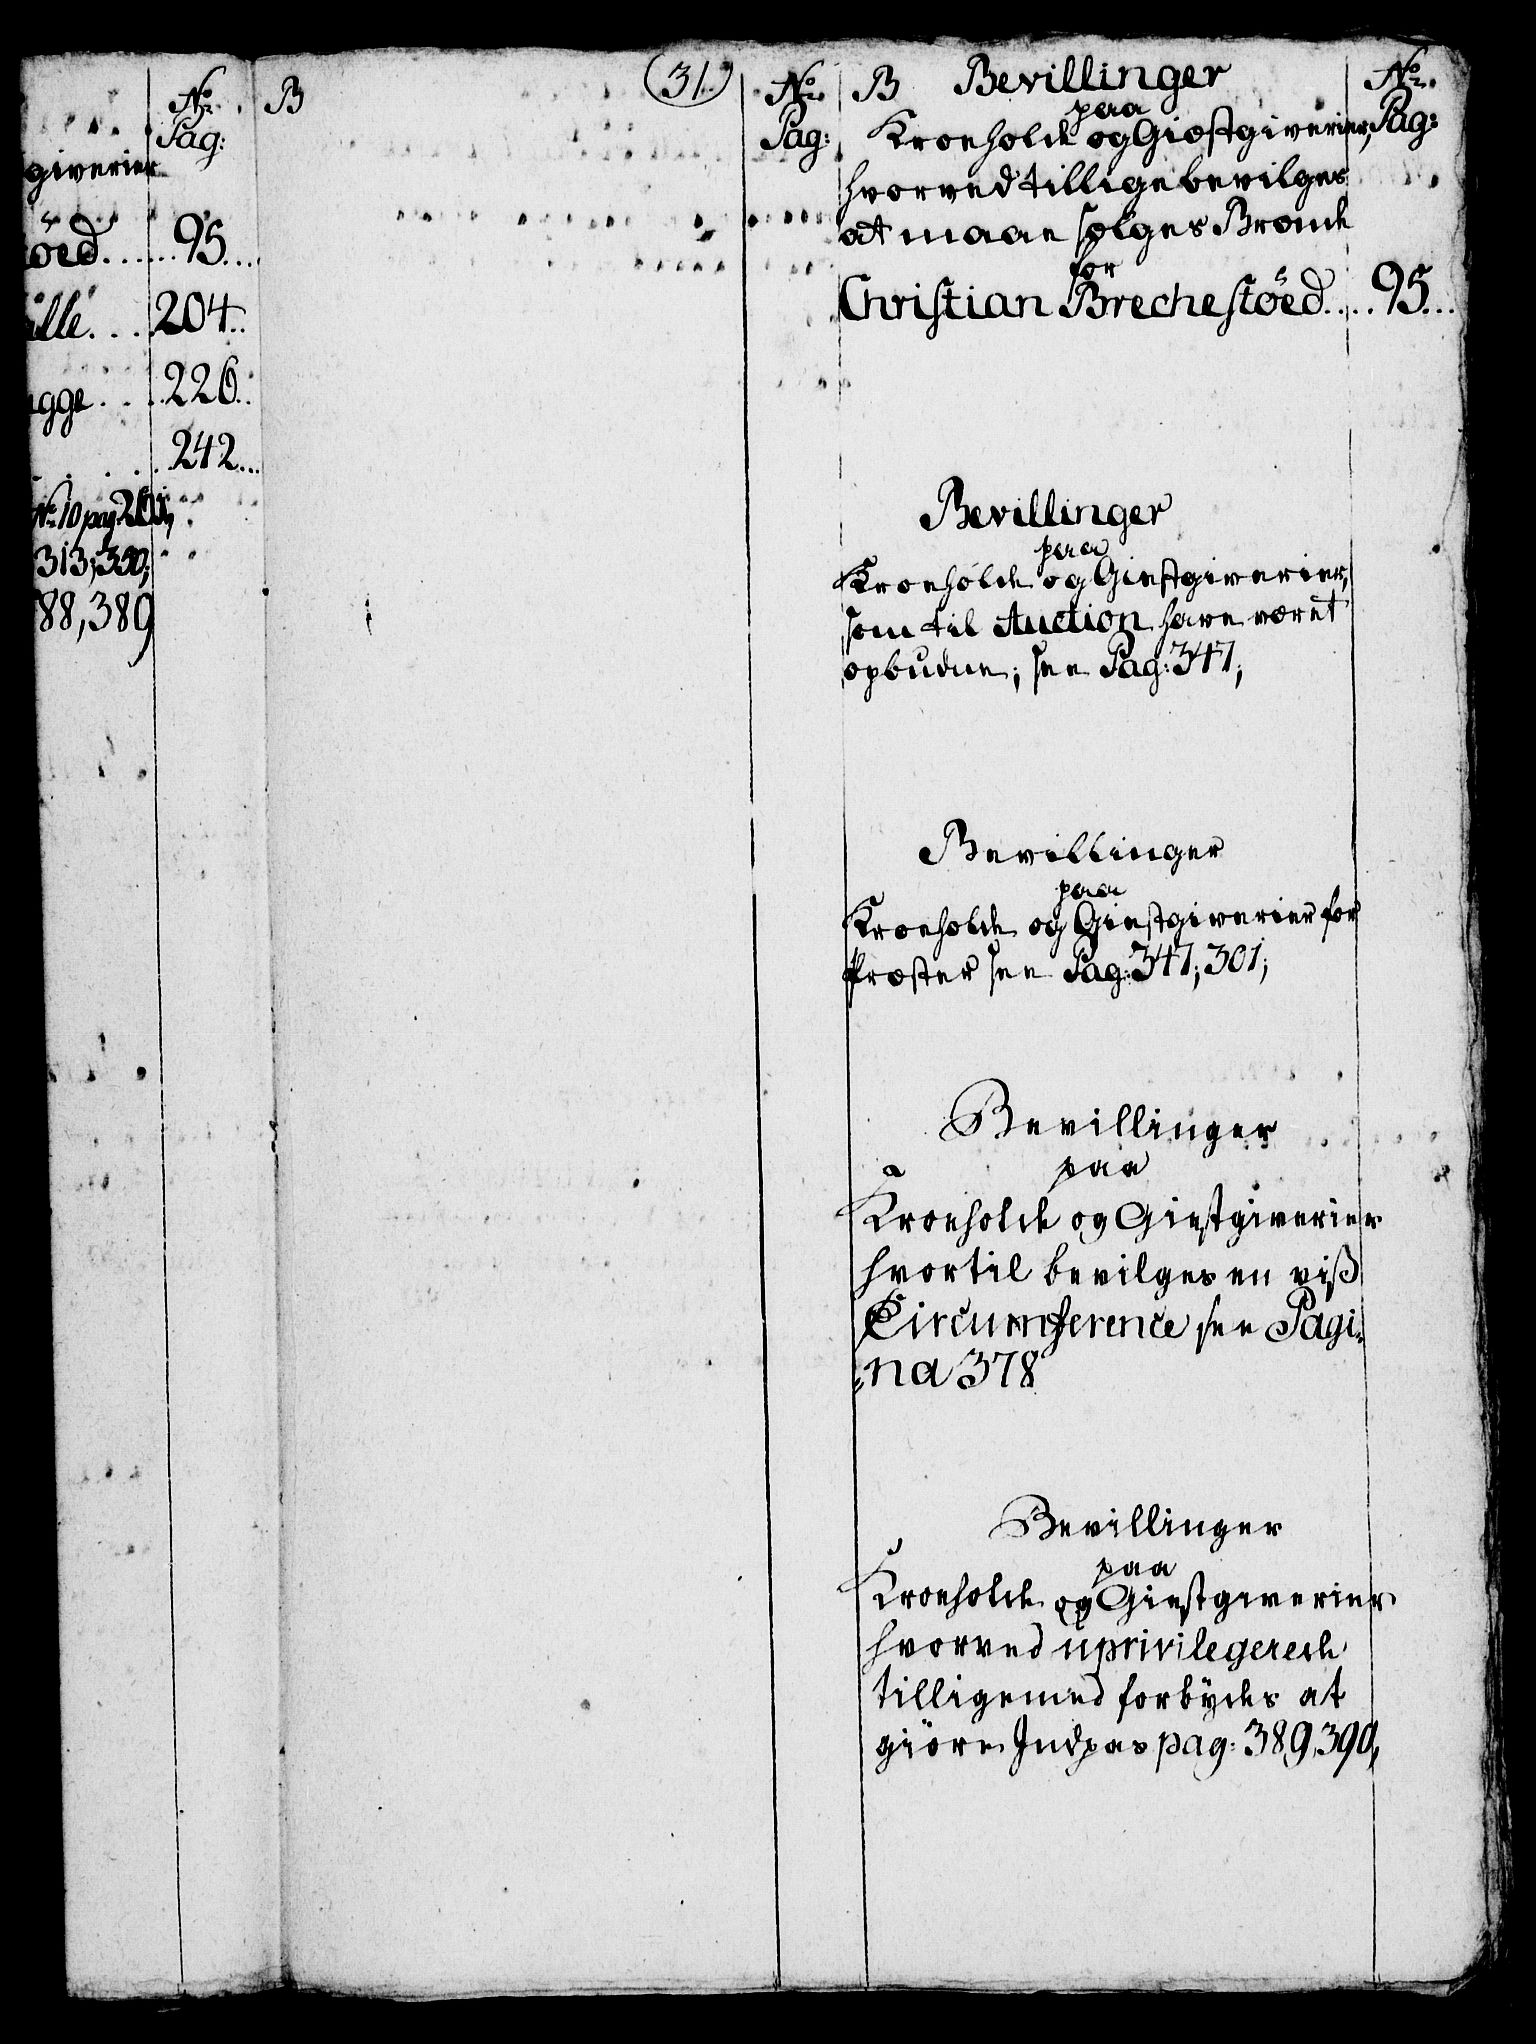 No.
Pag:
giverier
öed......95...
204..
gge....226..
....242...
No. 10 pag 201,
313,350,
88,389
B
31.
No.
Pag:
B Bevillinger
paa
Kroehold og Giæstgiverier,
hvorved tillige bevilges
at maae sælges Brende
for
Christian Brechestöed....95...
No.
Pag:
Bevillinger
paa
Kroehold og Giestgiverier,
som til Auction have været
opbudne; see Pag: 347,
Bevillinger
paa
Kroehold og Giestgiverier for
Præster see Pag: 347, 301,
Bevillinger
paa
Kroehold og Giestgiverier
hvortil bevilges en viß
Circumference see Pagi=
=na 378
Bevillinger
paa
Kroehold og Giestgiverier
hvorved uprivilegerede
tilligemed forbÿdes at
giöre Indpas pag: 389,390,